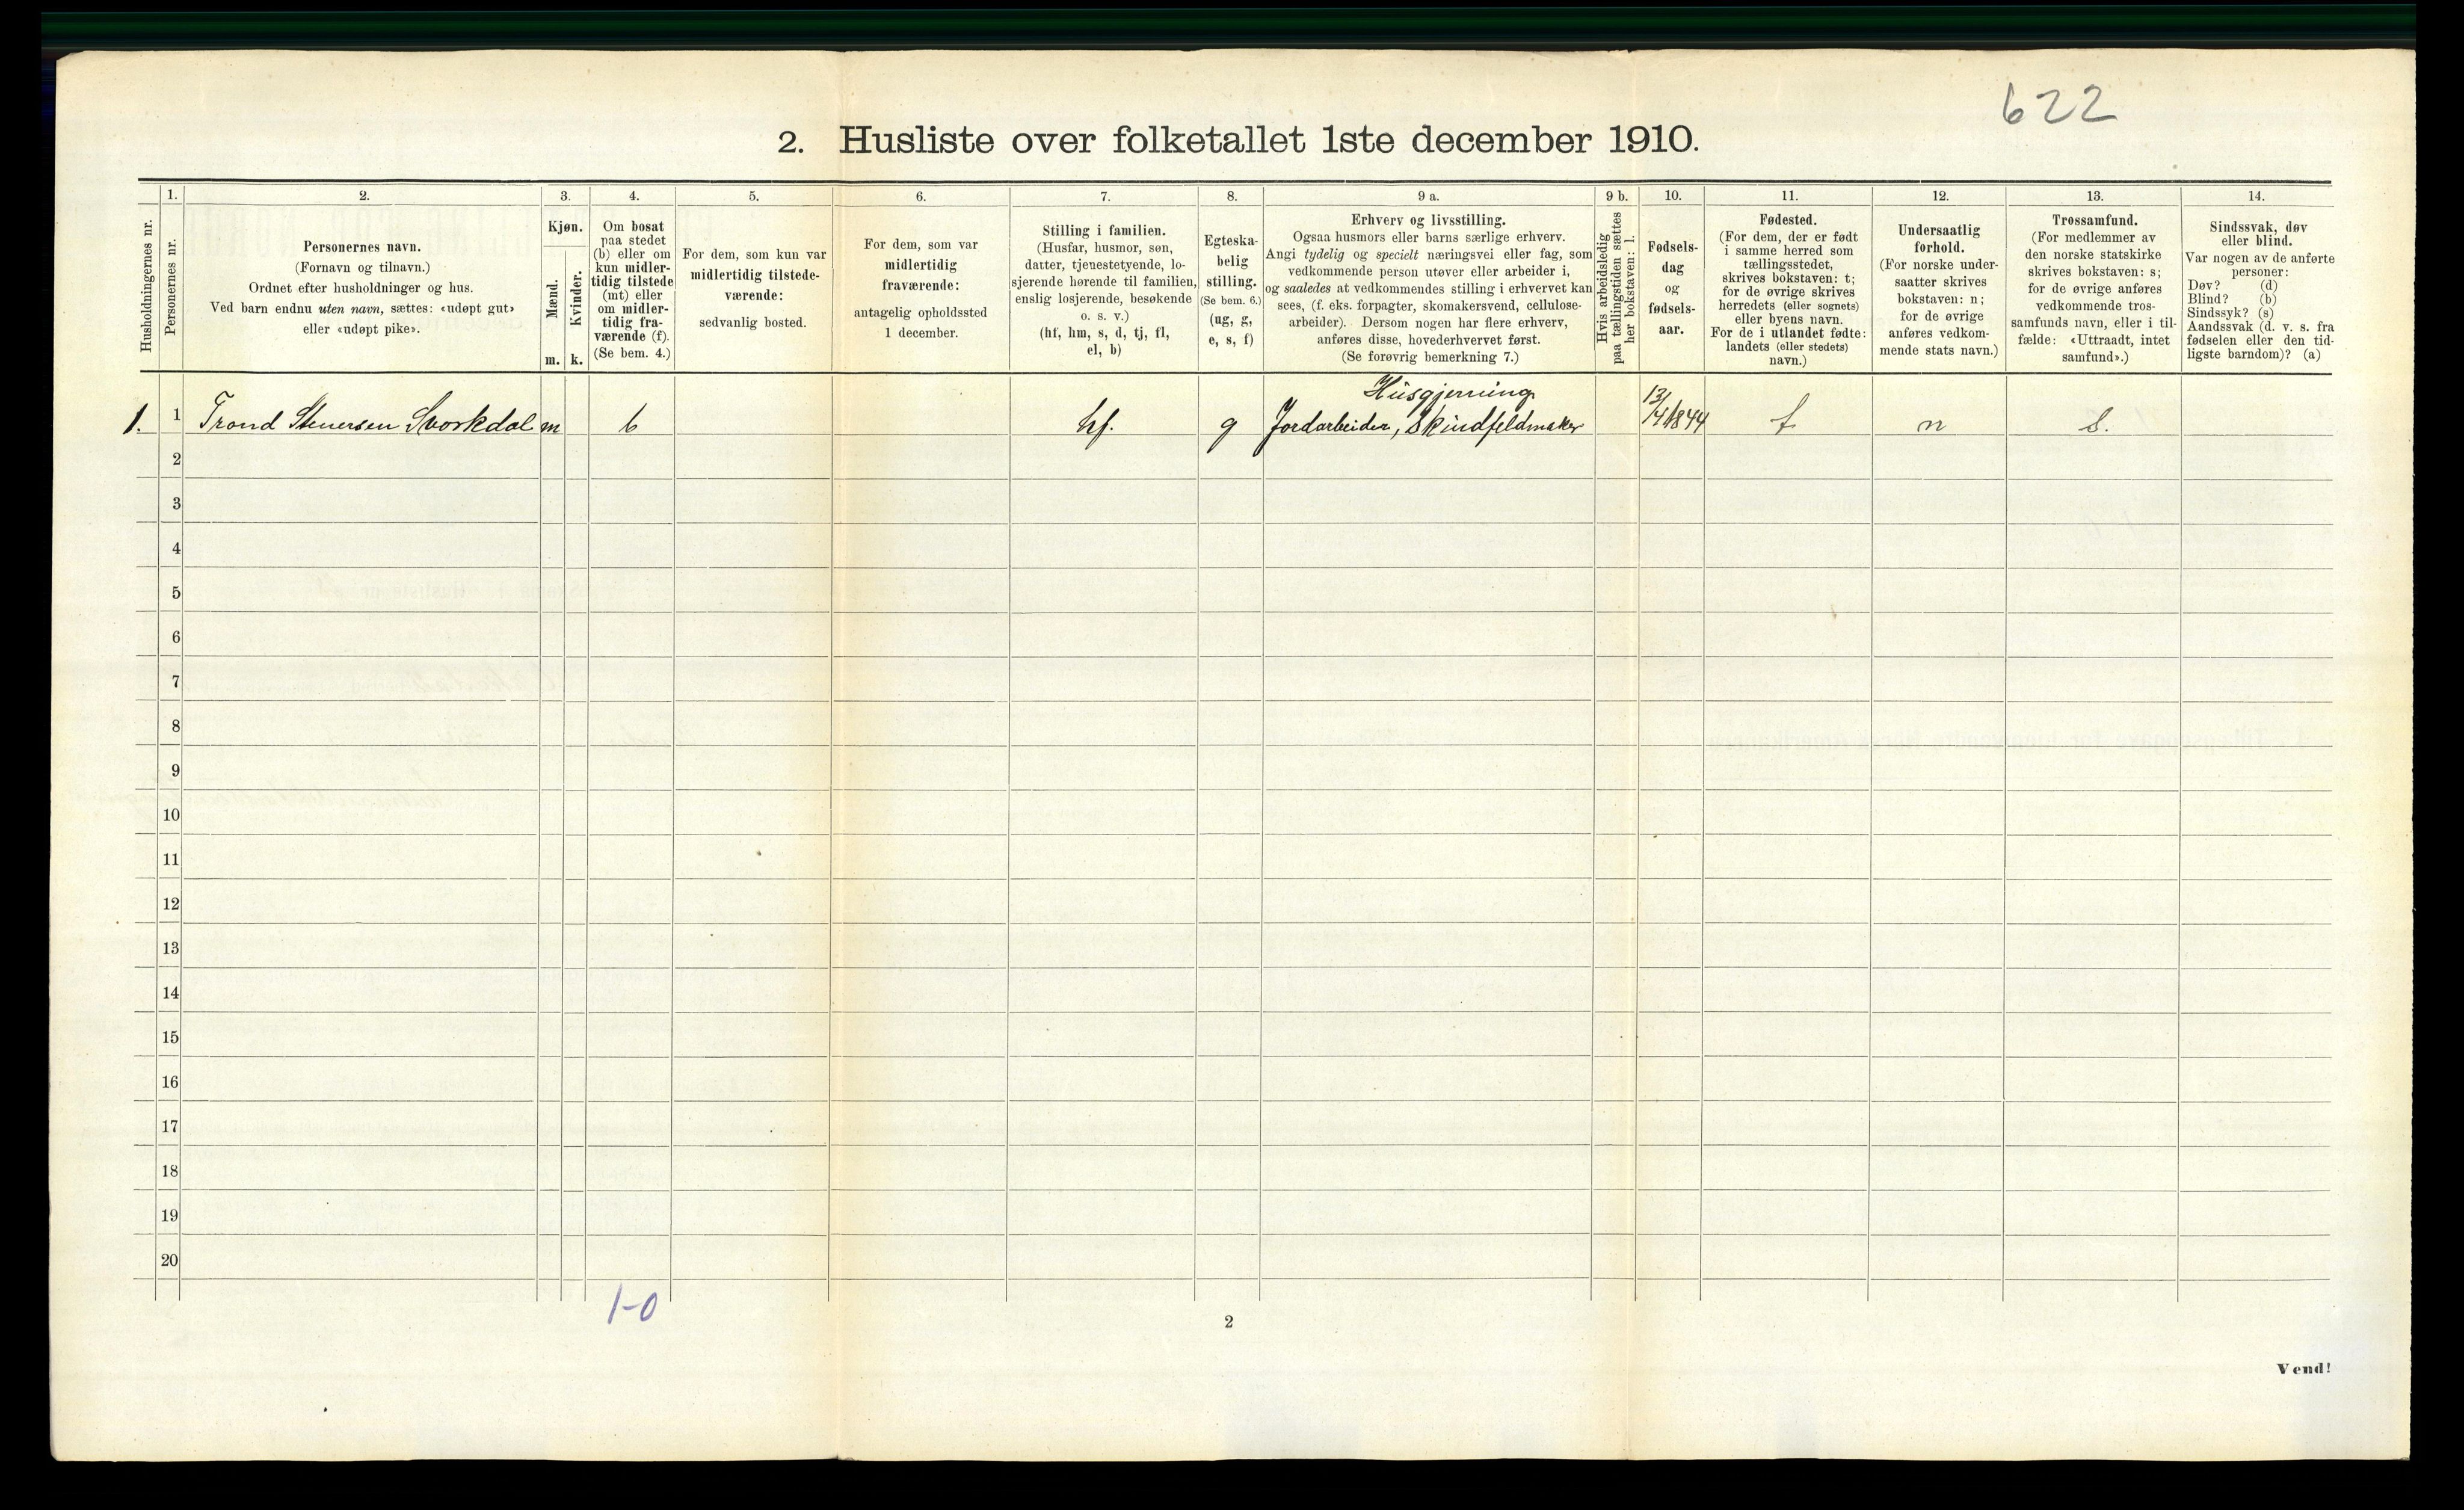 622
2. Husliste over folketallet 1ste december 1910.
Husholdningernes nr.
1.
Personernes nr.
2.
Personernes navn.
(Fornavn og tilnavn.)
Ordnet efter husholdninger og hus.
Ved barn endnu uten navn, sættes: «udøpt gut»
eller «udøpt pike».
3.
Kjøn.
Mænd.
m.
Kvinder.
k.
4.
Om bosat
paa stedet
(b) eller om
kun midler-
tidig tilstede
(mt) eller
om midler-
tidig fra-
værende (f).
(Se bem. 4.)
5.
For dem, som kun var
midlertidig tilstede-
værende:
sedvanlig bosted.
6.
For dem, som var
midlertidig
fraværende:
antagelig opholdssted
1 december.
7.
Stilling i familien.
(Husfar, husmor, søn,
datter, tjenestetyende, lo-
sjerende hørende til familien,
enslig losjerende, besøkende
o. s. v.)
(hf, hm, s, d, tj, fl,
el, b)
8.
Egteska-
belig
stilling.
(Se bem. 6.)
(ug, g,
e, s, f)
9 a.
Erhverv og livsstilling.
Ogsaa husmors eller barns særlige erhverv.
Angi tydelig og specielt næringsvei eller fag, som
vedkommende person utøver eller arbeider i,
og saaledes at vedkommendes stilling i erhvervet kan
sees, (f. eks. forpagter, skomakersvend, cellulose-
arbeider). Dersom nogen har flere erhverv,
anføres disse, hovederhvervet først.
(Se forøvrig bemerkning 7.)
9 b.
Hvis arbeidsledig
paa tællingstiden sættes
her bokstaven: l.
10.
Fødsels-
dag
og
fødsels-
aar.
11.
Fødested.
(For dem, der er født
i samme herred som
tællingsstedet,
skrives bokstaven: t;
for de øvrige skrives
herredets (eller sognets)
eller byens navn.
For de i utlandet fødte:
landets (eller stedets)
navn.)
12.
Undersaatlig
forhold.
(For norske under-
saatter skrives
bokstaven: n;
for de øvrige
anføres vedkom-
mende stats navn.)
13.
Trossamfund.
(For medlemmer av
den norske statskirke
skrives bokstaven: s;
for de øvrige anføres
vedkommende tros-
samfunds navn, eller i til-
fælde: «Uttraadt, intet
samfund».)
14.
Sindssvak, døv
eller blind.
Var nogen av de anførte
personer:
Døv? (d)
Blind? (b)
Sindssyk? (s)
Aandssvak (d. v. s. fra
fødselen eller den tid-
ligste barndom)? (a)
Husgjerning
1. 1 Trond Stenersen Svorkdal m b hf. g Jordarbeider, Skindfeldmaker 13/4 1844 t n s.
2
3
4
5
6
7
8
9
10
11
12
13
14
15
16
17
18
19
20
1-0
2
Vend!